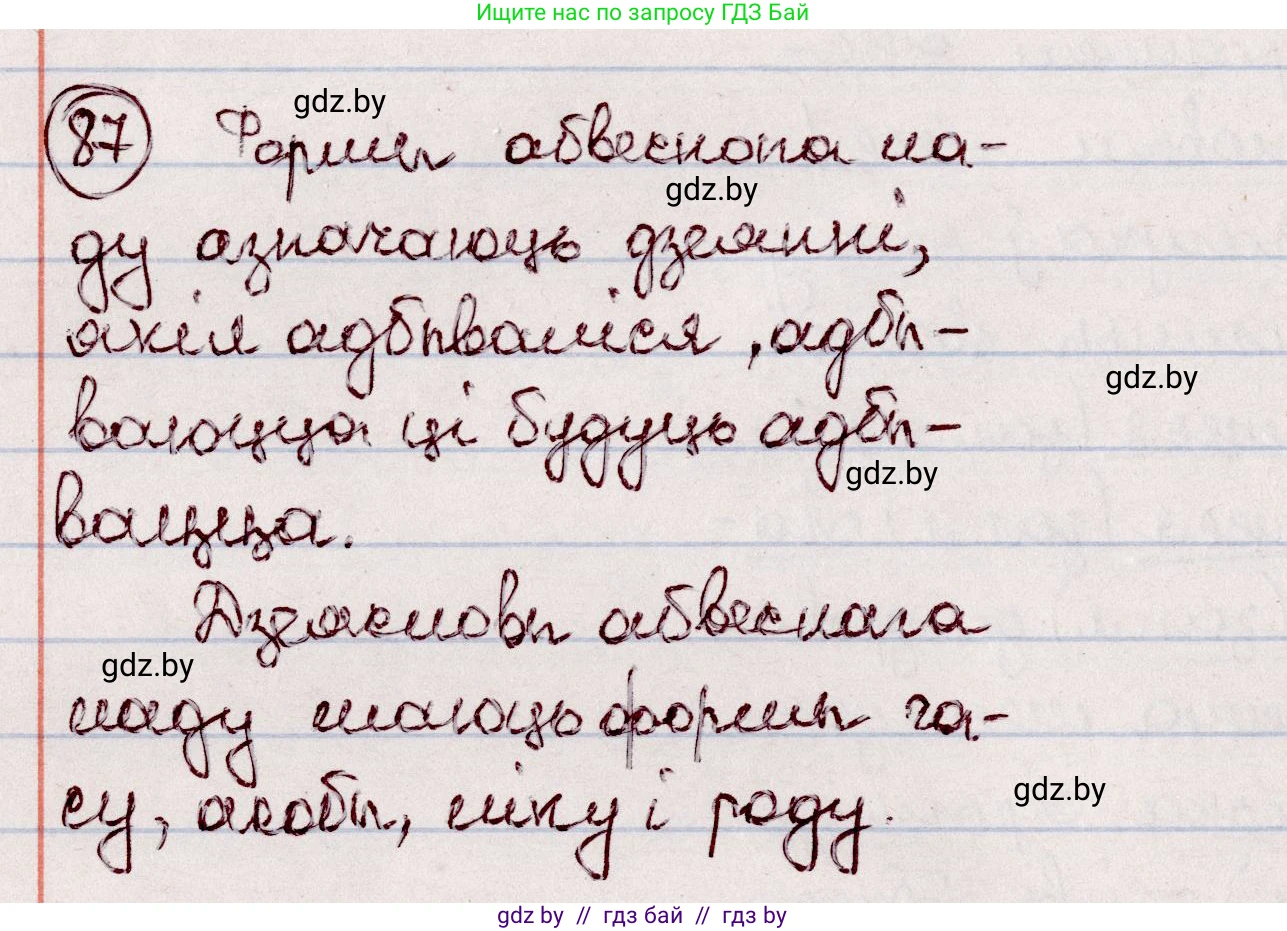 Ищите нас по запросу ГДЗ Бай
87 Формы абвеснога ла-
gdz.by
gdz.by
ду азначаюць дзеянні,
якія адбываліся, адбы-
gdz.by
ваюцца ці будуць адбы-
gdz.by
вацца.
Дзеясловы абвеснага
gdz.by
ладу маюць формы ча-
су, асобы, ліку і роду.
gdz.by
gdz by // гдз бай // гдз by